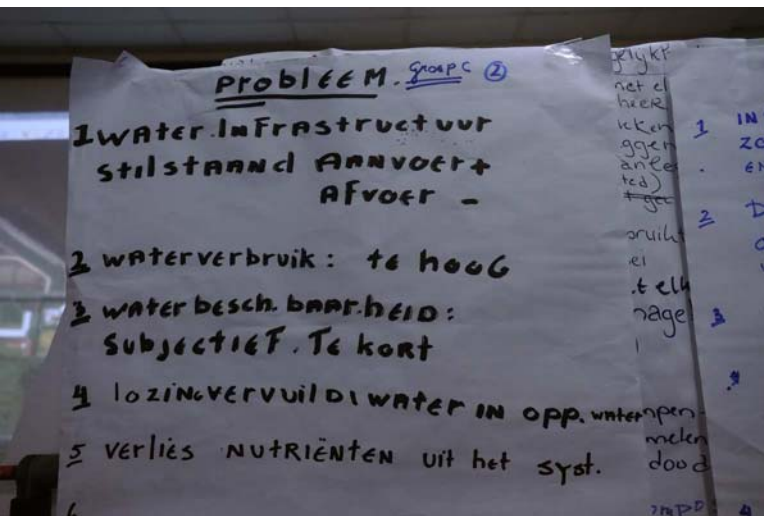 PROBLEEM. Groep C ②
1 WATER.INFRASTRUCTUUR
STILSTAAND AANVOER +
AFVOER -
2 WATERVERBRUIK: TE HOOG
3 WATERBESCH.BAAR.HEID:
SUBJECTIEF. TE KORT
4 LOZING VERVUILD WATER IN OPP. WATER
5 VERLIES NUTRIËNTEN UIT HET SYST.
6
gelykt
net el
ggen
ted)
bruikt
.t elk
nagel
melen
dood
1 IN
2 D
3
4